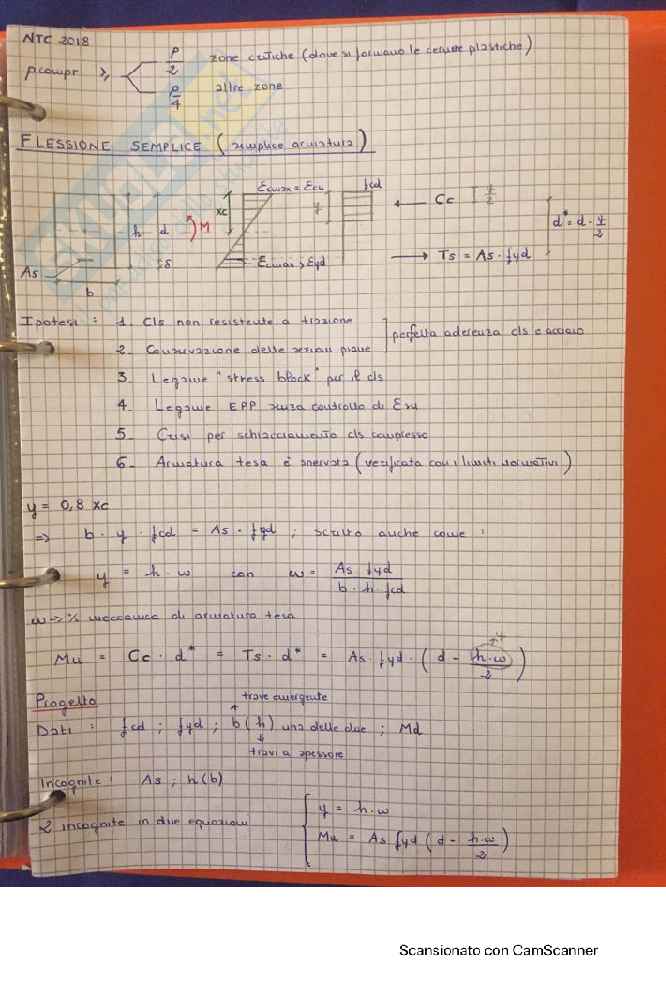 NTC 2018
ρcompr ≥ ρ/2 zone critiche (dove si formano le cerniere plastiche)
ρ/4 altre zone
FLESSIONE SEMPLICE (semplice armatura)
xc εcmax = εcu y fcd Cc y/2
h d M d* = d - y/2
As δ εsmax > εyd Ts = As · fyd
b
Ipotesi : 1. Cls non resistente a trazione
2. Conservazione delle sezioni piane
perfetta aderenza cls e acciaio
3 Legame "stress block" per il cls
4 Legame EPP senza controllo di εsu
5 Crisi per schiacciamento cls compresso
6- Armatura tesa è snervata (verificata con i limiti normativi)
y = 0,8 xc
=> b · y · fcd = As · fyd ; scritto anche come :
y = h · w con w = As fyd / b · h · fcd
w -> % meccanica di armatura tesa
Mu = Cc · d* = Ts · d* = As · fyd · (d - h·w/2)
Progetto trave emergente
Dati : fcd ; fyd ; b (h) una delle due ; Md
travi a spessore
Incognite : As ; h(b)
2 incognite in due equazioni
y = h·w
Mu = As fyd (d - h·w/2)
Scansionato con CamScanner